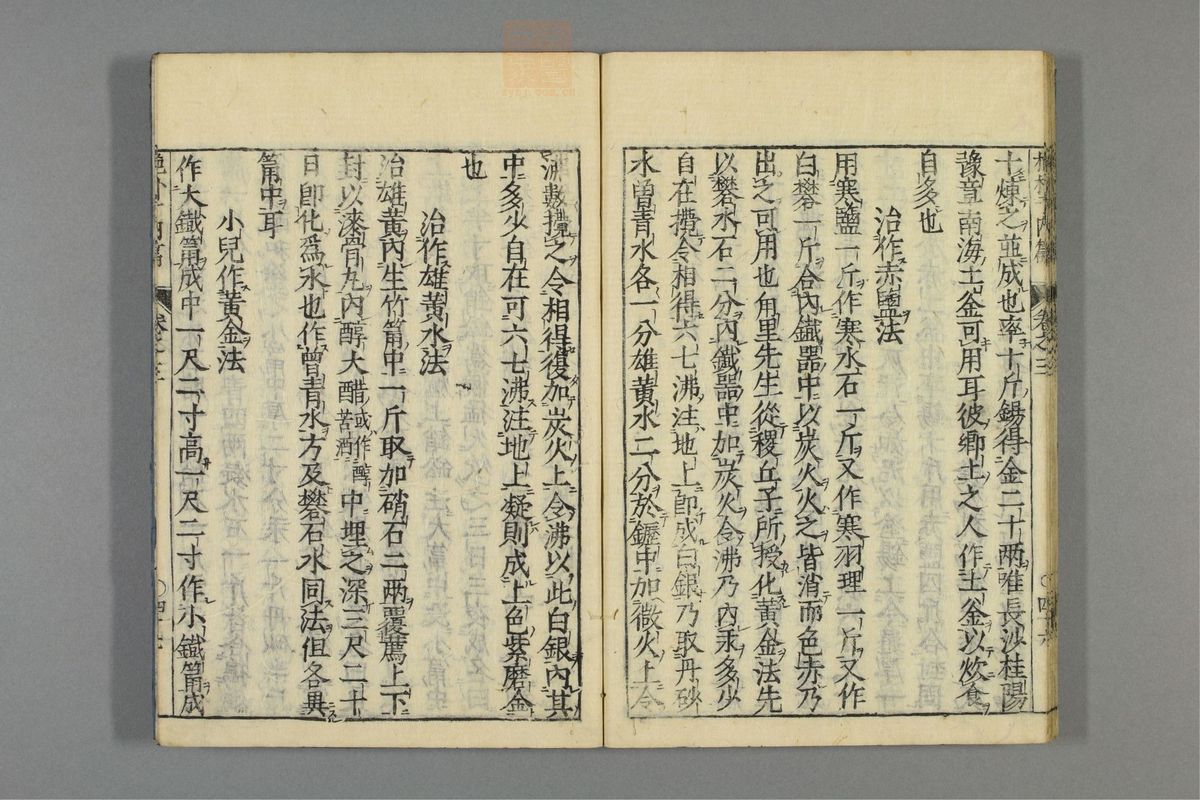 十煉之並成也率十斤錫得金二十兩唯長沙桂陽
豫章南海土釜可用耳彼鄉土之人作土釜以炊食
自多也
治作赤鹽法
用寒鹽一斤作寒水石一斤又作寒羽理一斤又作
白礬一斤合內鐵器中以炭火火之皆消而色赤乃
出之可用也甪里先生從稷丘子所授化黃金法先
以礬水石二分內鐵器中加炭火令沸乃內汞多少
自在攪令相得六七沸注地上卽成白銀乃取丹砂
水曾青水各一分雄黃水二分於鑩中加微火上令
沸數攪之令相得復加炭火上令沸以此白銀內其
中多少自在可六七沸注地上凝則成上色紫磨金
也
治作雄黃水法
治雄黃內生竹筩中一斤取加硝石二兩覆薦上下
封以漆骨丸內醇大醋或作醇苦酒中埋之深三尺二十
日卽化爲水也作曾青水方及礬石水同法但各異
筩中耳
小兒作黃金法
作大鐵筩成中一尺二寸高一尺二寸作小鐵筩成